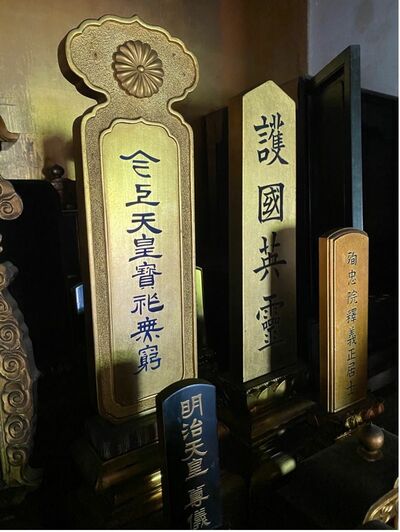 今上天皇寶祚無窮
護國英靈
殉忠院釋義正居士
明治天皇 尊儀